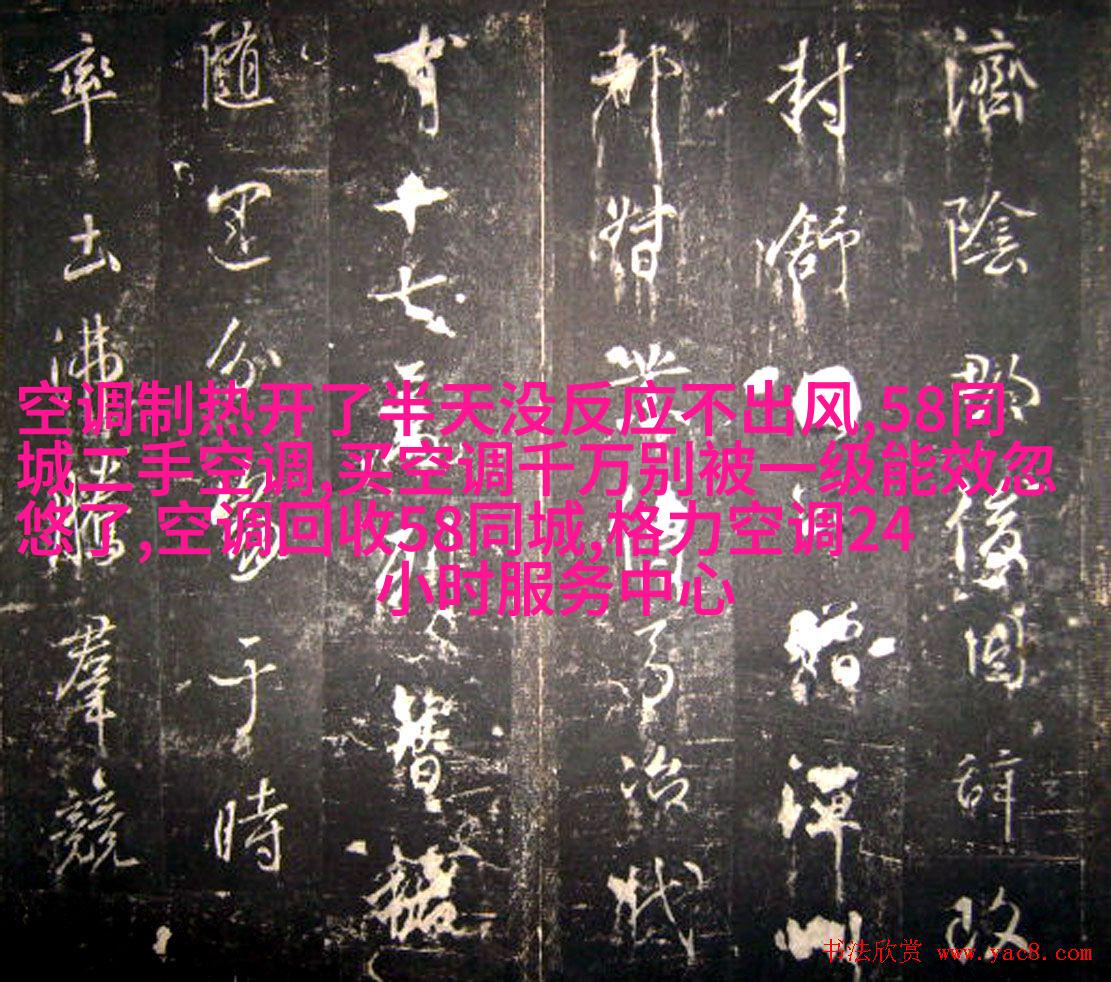 空调制热开了半天没反应不出风,58同
城二手空调,买空调千万别被一级能效忽
悠了,空调回收58同城,格力空调24
小时服务中心
濟陰郡後因辭改
封舒贈潭州
都督
有十七
隨運分于時
率土沸騰羣競
书法欣赏 www.yac8.com